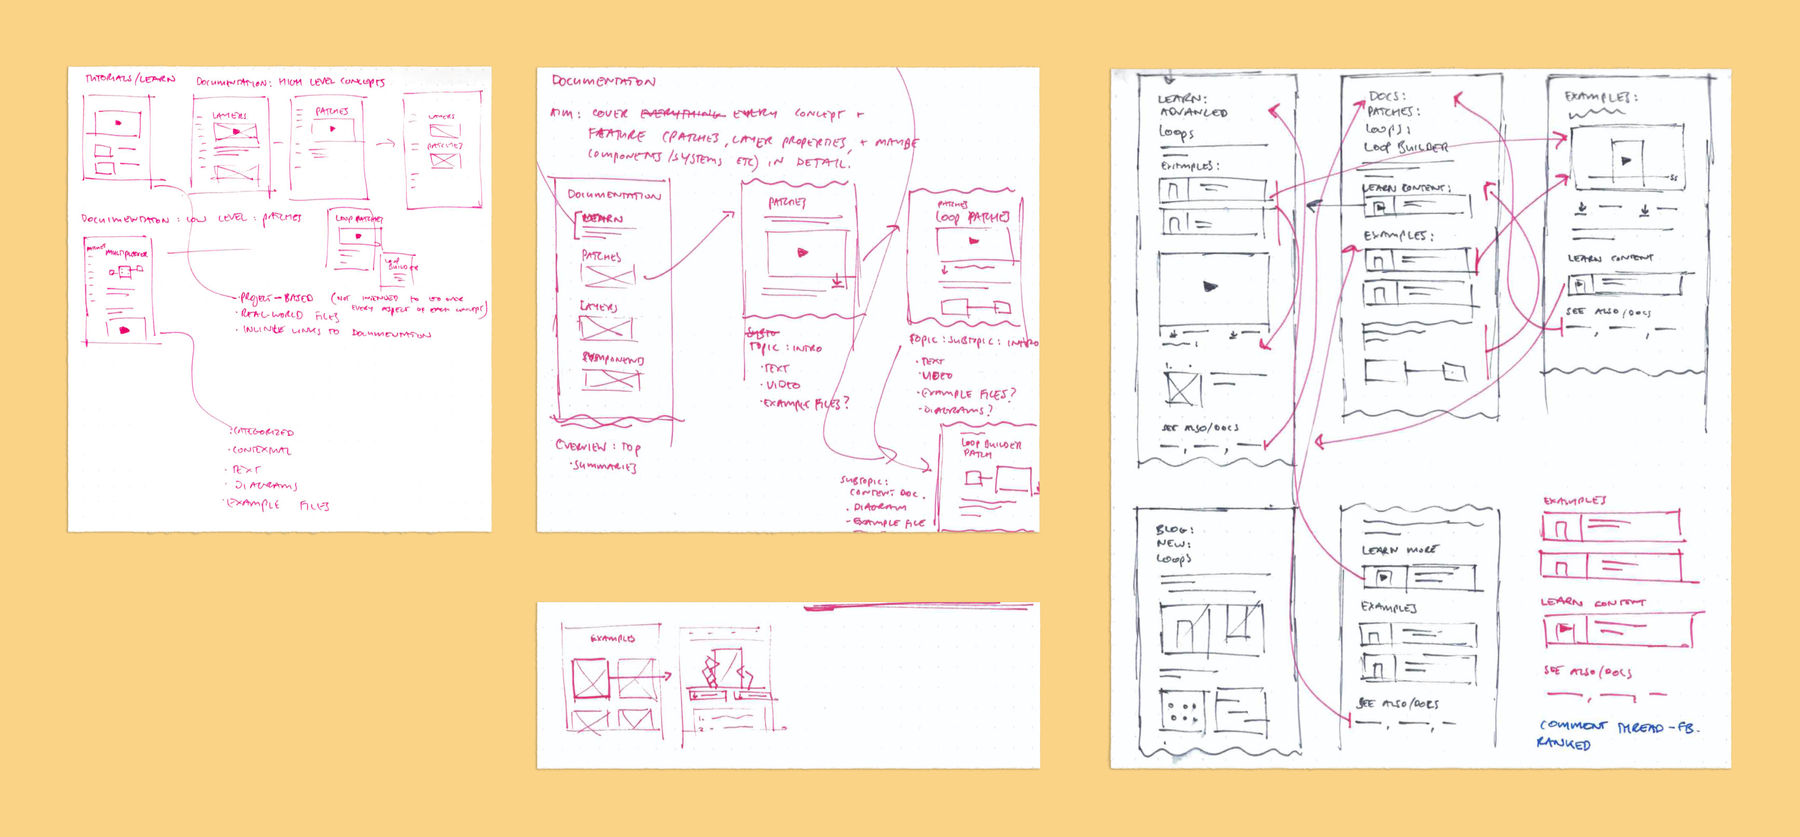 TUTORIALS/LEARN
DOCUMENTATION: HIGH LEVEL CONCEPTS
LAYERS
PATCHES
LAYERS
PATCHES?
DOCUMENTATION: LOW LEVEL: PATCHES
MULTIPLEXER
LOOP PATCHES
LOOP BUILDER
• PROJECT-BASED (NOT INTENDED TO
EVERY ASPECT OF EACH CONCEPT)
• REAL-WORLD FILES
• INLINE LINKS TO DOCUMENTATION
• CATEGORIZED
• CONTEXTUAL
• TEXT
• DIAGRAMS
• EXAMPLE FILES
DOCUMENTATION
AIM: COVER EVERYTHING EVERY CONCEPT +
FEATURE (PATCHES, LAYER PROPERTIES, + MAYBE
COMPONENTS/SYSTEMS ETC) IN DETAIL.
DOCUMENTATION
LEARN
PATCHES
LAYERS
COMPONENT
OVERVIEW: TOP
• SUMMARIES
PATCHES
SUBTO
TOPIC: INTRO
• TEXT
• VIDEO
• EXAMPLE FILES?
PATCHES
LOOP PATCHES
TOPIC: SUBTOPIC: INTRO
• TEXT
• VIDEO
• EXAMPLE FILES?
• DIAGRAMS?
LOOP BUILDER
PATCH
SUBTOPIC:
CONTENT DOC.
• DIAGRAM
- EXAMPLE FILE
EXAMPLES
LEARN:
ADVANCED
LOOPS
EXAMPLES:
SEE ALSO/DOCS
DOCS:
PATCHES:
LOOPS:
LOOP BUILDER
LEARN CONTENT:
EXAMPLES:
EXAMPLES:
LEARN CONTENT
SEE ALSO/DOCS
BLOG:
NEW:
LOOPS
LEARN MORE
EXAMPLES
SEE ALSO/DOCS
EXAMPLES
LEARN CONTENT
SEE ALSO/DOCS
COMMENT THREAD - FB.
RANKED